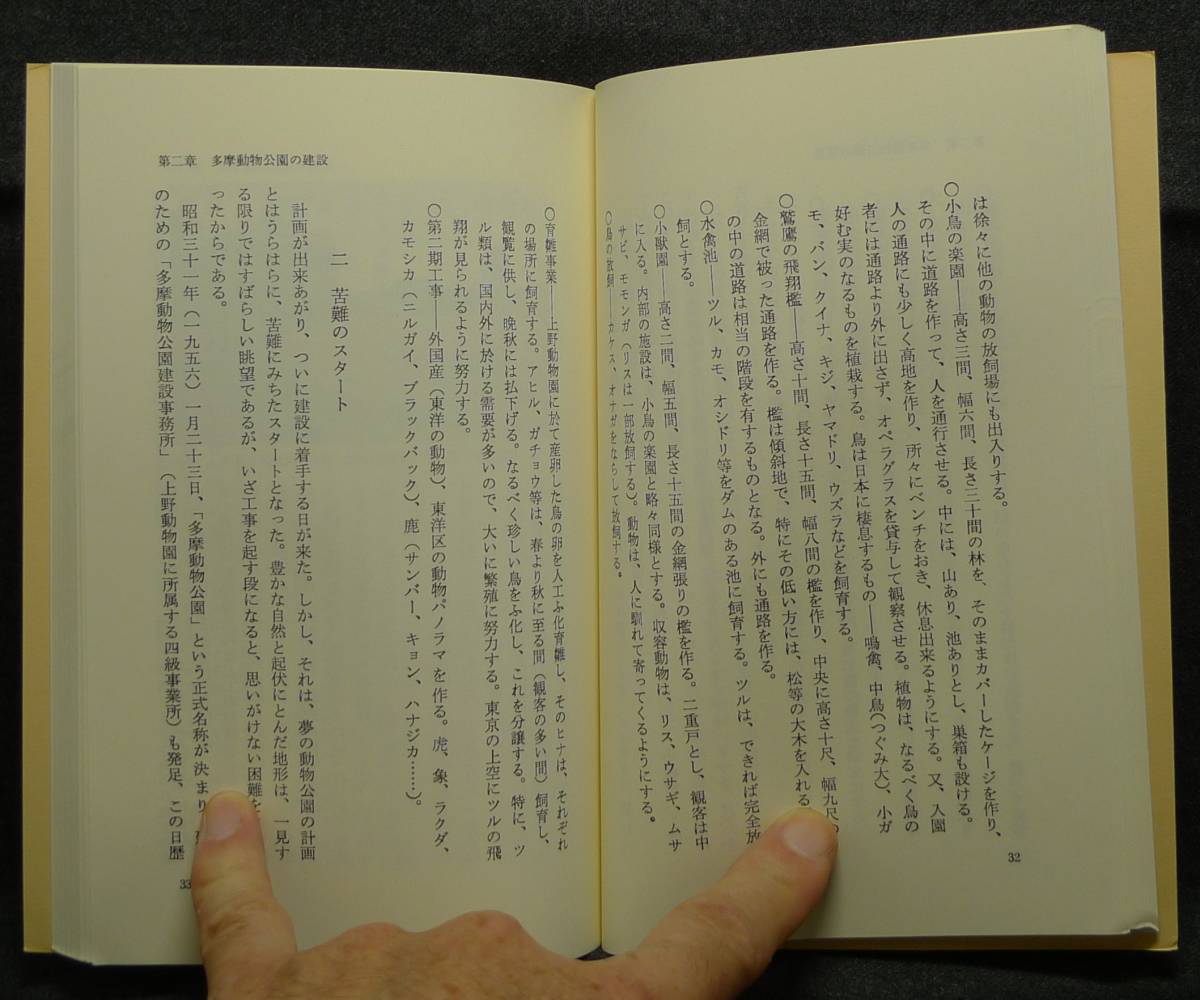 は徐々に他の動物の放飼場にも出入りする。
○小鳥の楽園――高さ三間、幅六間、長さ三十間の林を、そのままカバーしたケージを作り、
その中に道路を作って、人を通行させる。中には、山あり、池ありとし、巣箱も設ける。
人の通路にも少しく高地を作り、所々にベンチをおき、休息出来るようにする。又、入園
者には通路より外に出さず、オペラグラスを貸与して観察させる。植物は、なるべく鳥の
好む実のなるものを植栽する。鳥は日本に棲息するもの――鳴禽、中鳥(つぐみ大)、小ガ
モ、バン、クイナ、キジ、ヤマドリ、ウズラなどを飼育する。
○鷲鷹の飛翔檻――高さ十間、長さ十五間、幅八間の檻を作り、中央に高さ十尺、幅九尺の
金網で被った通路を作る。檻は傾斜地で、特にその低い方には、松等の大木を入れる
の中の道路は相当の階段を有するものとなる。外にも通路を作る。
○水禽池――ツル、カモ、オシドリ等をダムのある池に飼育する。ツルは、できれば完全放
飼とする。
○小獣園――高さ二間、幅五間、長さ十五間の金網張りの檻を作る。二重戸とし、観客は中
に入る。内部の施設は、小鳥の楽園と略々同様とする。収容動物は、リス、ウサギ、ムサ
サビ、モモンガ(リスは一部放飼する)。動物は、人に馴れて寄ってくるようにする。
○鳥の放飼――カケス、オナガをならして放飼する。
32
第二章 多摩動物公園の建設
○育雛事業――上野動物園に於て産卵した鳥の卵を人工ふ化育雛し、そのヒナは、それぞれ
の場所に飼育する。アヒル、ガチョウ等は、春より秋に至る間(観客の多い間)飼育し、
観覧に供し、晩秋には払下げる。なるべく珍しい鳥をふ化し、これを分譲する。特に、ツ
ル類は、国内外に於ける需要が多いので、大いに繁殖に努力する。東京の上空にツルの飛
翔が見られるように努力する。
○第二期工事――外国産(東洋の動物)、東洋区の動物パノラマを作る。虎、象、ラクダ、
カモシカ(ニルガイ、ブラックバック)、鹿(サンバー、キョン、ハナジカ……)。
二 苦難のスタート
計画が出来あがり、ついに建設に着手する日が来た。しかし、それは、夢の動物公園の計画
とはうらはらに、苦難にみちたスタートとなった。豊かな自然と起伏にとんだ地形は、一見す
る限りではすばらしい眺望であるが、いざ工事を起す段になると、思いがけない困難を
ったからである。
昭和三十一年(一九五六)一月二十三日、「多摩動物公園」という正式名称が決まり
のための「多摩動物公園建設事務所」(上野動物園に所属する四級事業所)も発足、この日歴
33